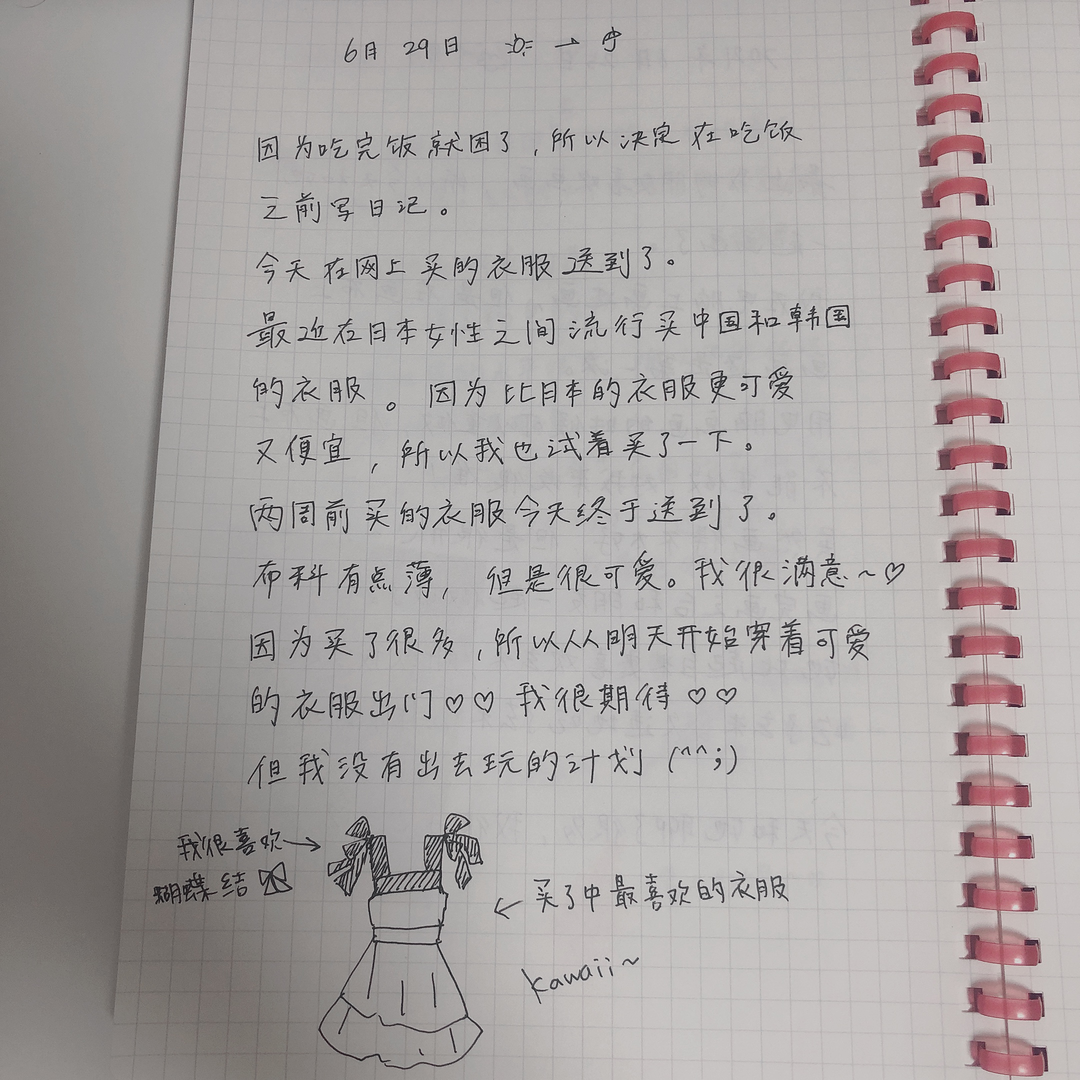 6月 29日 → 
因为吃完饭就困了,所以决定在吃饭
之前写日记。
今天在网上买的衣服送到了。
最近在日本女性之间流行买中国和韩国
的衣服。因为比日本的衣服更可爱
又便宜,所以我也试着买了一下。
两周前买的衣服今天终于送到了。
布料有点薄,但是很可爱。我很满意~♡
因为买了很多,所以从明天开始穿着可爱
的衣服出门♡♡ 我很期待♡♡
但我没有出去玩的计划(^^;)
我很喜欢→
蝴蝶结
← 买了中最喜欢的衣服
kawaii~